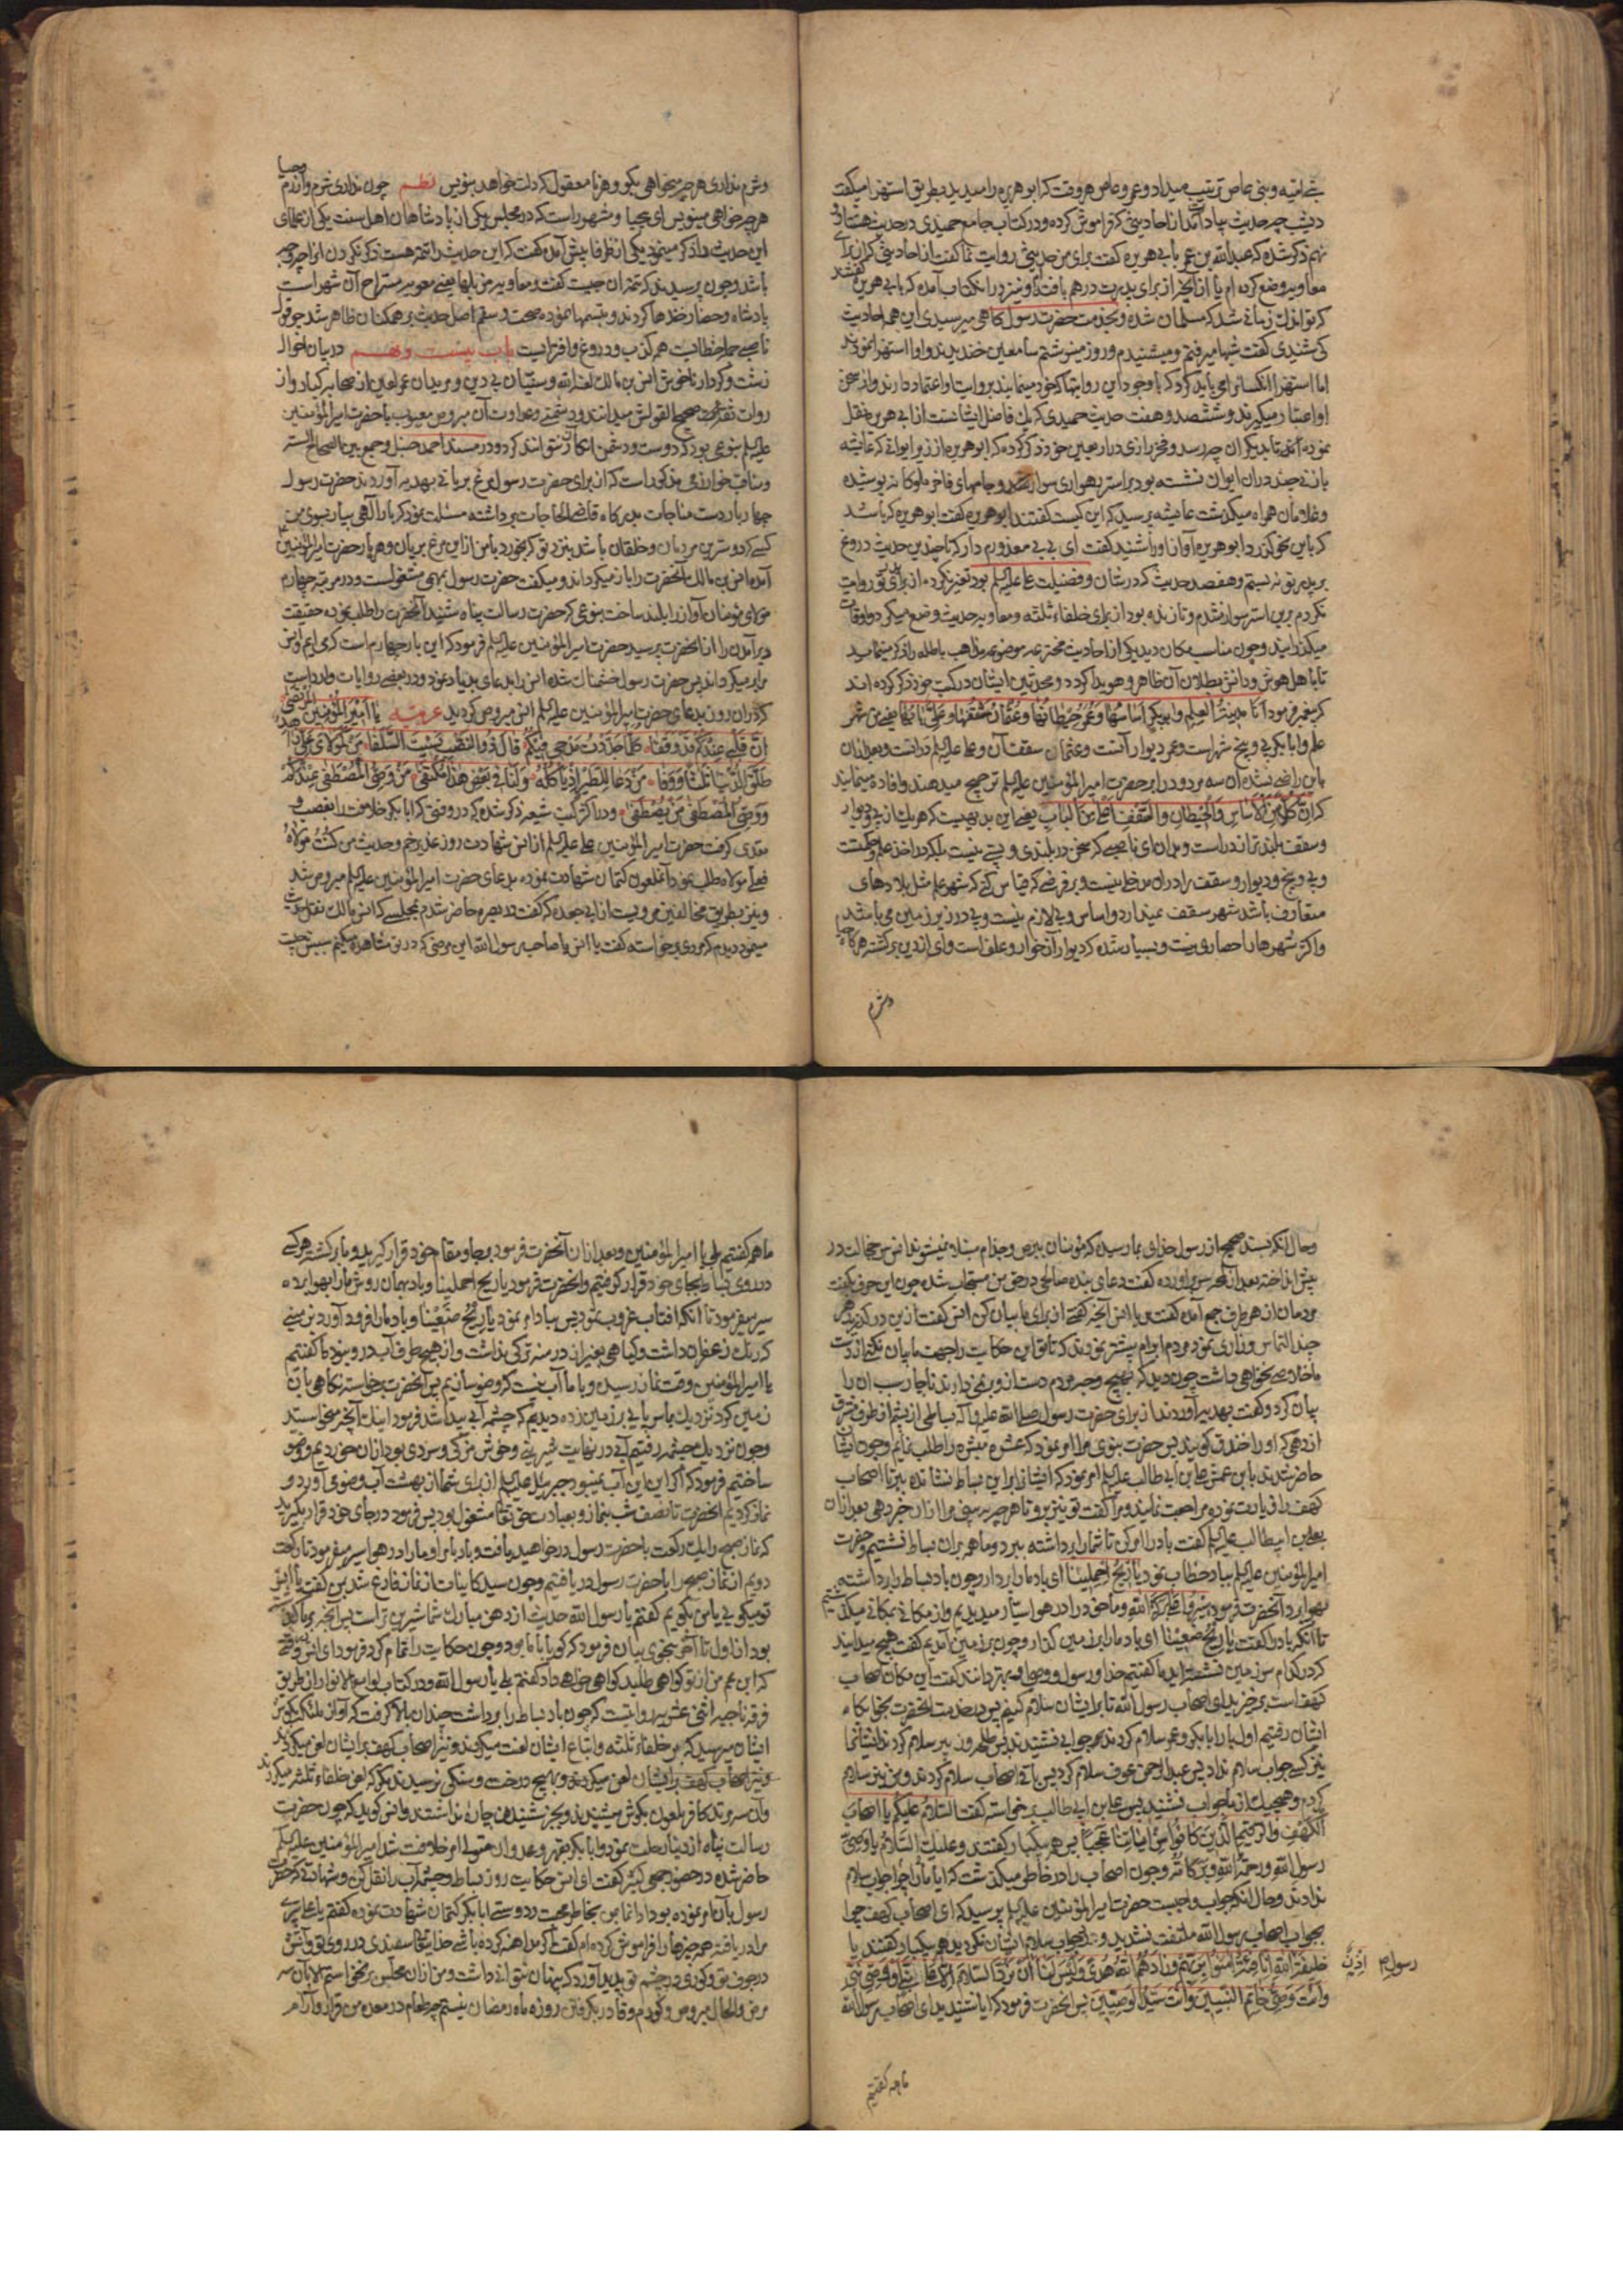 بنی امیه و بنی عاص ترتیب میداد و عمرو عاص هر وقت که ابوهریره را میدید بطریق استهزا میگفت
دیشب چه حدیث بیاد آمد از احادیثی که فراموش کرده و در کتاب جامع حمیدی در حدیث هشتاد
نهم ذکر شده که عبدالله بن عمر بابی هریره گفت برای من حدیثی روایت نما گفت از احادیثی که از برای
معاویه وضع کرده ام یا از آنکه از برای پدرت در هم بافته و نیز در آن کتاب آمده که بابی هریره گفتند
که تو اندک زمانی شد که مسلمان شده و بخدمت حضرت رسول گاهی میرسیدی این همه احادیث
کی شنیدی گفت شبها میرفتم و میشنیدم و روز مینوشتم سامعین خندیدند و او را استهزا نمودند
اما استهزا آن کسان را می باید کرد که با وجود این روایتها که خود مینمایند بروایت او اعتماد دارند و از سخن
او اعتبار میگیرند و ششصد و هفت حدیث حمیدی که یک فاضل ایشانست از ابی هریره نقل
نموده تا بدیگران چه رسد و فخر رازی در اربعین خود ذکر کرده که ابوهریره از زیر ایوانی که عایشه
با زنی چند در آن ایوان نشسته بود بر استر رهواری سوار شده و جامهای فاخر ملوکانه پوشیده
و غلامان همراه میگذشت عایشه پرسید که این کیست گفتند ابوهریره گفت ابوهریره که باشد
که باین نحو گذرد ابوهریره آواز او را شنید گفت ای بی بی معذورم دار که تا چندین حدیث دروغ
بر پدر تو نبستم و هفصد حدیث که در شان و فضیلت علی علیه السلم بود تغییر نکرده از برای تو روایت
نکردم برین استر سوار نشدم و تا زنده بود از برای خلفاء ثلثه و معاویه حدیث وضع میکرد و اوقات
میگذرانید و چون مناسب مکان دید یکی از احادیث مخترعه موضوعه مذاهب باطله را ذکر مینماید
تا با اهل هوش و دانش بطلان آن ظاهر و هویدا گردد و محدثین ایشان در کتب خود ذکر کرده اند
که پیغمبر فرمود انا مدینة العلم و ابوبکر اساسها و عمر حیطانها و عثمان سقفها و علی بابها یعنی من شهر
علم و ابابکر پی و بیخ شهر است و عمر دیوار آنست و عثمان سقف آن و علی علیه السلم در آنست و بعد از آن
باین راضی نشده آن سه مردود را بر حضرت امیرالمؤمنین علیه السلم ترجیح میدهند و افاده مینمایند
که ان کلا من الاساس و الحیطان و السقف اعلی من الباب یعنی این بدیهیست که هر یک از پی و دیوار
و سقف بلندتر از در است و بدان ای ناصبی که سخن در بلندی و پستی نیست بلکه در اخذ علم و حکمتست
و پی و بیخ و دیوار و سقف را در آن مدخلی نیست و بر فرضی که قیاس کنی که شهر علم مثل بلادهای
متعارف باشد شهر سقف نمیدارد و اساس و پی لازم نیست و پی در زیر زمین می باشد
و اکثر شهرها را حصاری نیست و بسیار شده که دیوار آن خوار و علف است وای از دین برگشته هرگاه حیا
و شرم
و شرم نداری هر چه میخواهی بگو و هر نامعقول که دلت خواهد بنویس نظم چون نداری شرم و آزرم و حیا
هر چه خواهی مینویس ای بیحیا و مشهور است که در مجلس یکی از پادشاهان اهل سنت یکی از علمای
این حدیث را ذکر مینمود یکی از ظرفا پیش آمد گفت که این حدیث را تتمه هست ذکر نکردن آنرا چه وجه
باشد و چون پرسیدند که تتمه آن چیست گفت و معاویه مزبلها یعنی معویه مستراح آن شهر است
پادشاه و حضار خندها کردند و تبسمها نموده صحت و سقم اصل حدیث بر همکنان ظاهر شد چه قول
ناصبی جمله خطاست همه کذب و دروغ و افتراست باب بیست و نهم در بیان احوال
زشت و کردار ناخوش انس بن مالک لعنه الله و سنیان بی دین و مریدان عمر لعین از صحابه کبار و از
روات ثقه و صحیح القولش میدانند و دشمنی و عداوت آن مبروص معیوب با حضرت امیرالمؤمنین
علیه السلم بنوعی بود که دوست و دشمن انکار آن نتوانند کرد و در مسند احمد حنبل و جمع بین الصحاح السته
و مناقب خوارزمی مذکور است که از برای حضرت رسول مرغ بریانی بهدیه آوردند حضرت رسول
چهار بار دست مناجات بدرگاه قاضی الحاجات برداشته مسئلت نمود که بار الهی بیار بسوی من
کسی که دوسترین مردمان و خلقان باشد بنزد تو که بخورد با من از این مرغ بریان و هر بار حضرت امیرالمؤمنین علی
آمده انس بن مالک آنحضرت را باز میگرداند و میگفت حضرت رسول بمهمی مشغولست و در مرتبه چهارم
مولای مؤمنان آواز را بلند ساخت بنوعی که حضرت رسالت پناه شنید آنحضرت را طلب نموده حقیقت
دیر آمدن را از آنحضرت پرسید حضرت امیرالمؤمنین علیه السلم فرمود که این بار چهارم است که می ایم و انس
مرا بر میگرداند پس حضرت رسول خشمناک شده انس را بدعای بد یاد نمود و در بعضی روایات وارد است
که در آن روز بدعای حضرت امیرالمؤمنین علیه السلم انس مبروص گردید عربیه یا امیر المؤمنین المرتضی
ان قلبی عندکم قد وقفا کلما جددت مدحی فیکم قال ذوالنصب نسیت السلفا من کمولای علی زاهد
طلق الدنیا ثلاثا و وفا من دعا للطیر ان یاکله و لنا فی بعض هذا مکتفی من وصی المصطفی عندکم
و وصی المصطفی من یصطفی و در اکثر کتب شیعه ذکر شده که در وقتی که ابابکر خلافت را بغصب و
تعدی گرفت حضرت امیرالمؤمنین علی علیه السلم از انس شهادت روز غدیر خم و حدیث من کنت مولاه
فعلی مولاه طلب نمود آن ملعون کتمان شهادت نموده بدعای حضرت امیرالمؤمنین علیه السلم مبروص شد
و نیز بطریق مخالفین مرویست از ابی جعده که گفت در بصره حاضر شدم بمجلسی که انس مالک نقل حدیث
مینمود دیدم که مردی برخاسته گفت یا انس یا صاحب رسول الله این مرضی که در تو مشاهده میکنم سببش چیست
و حال انکه بسند صحیح از رسول خدای بما رسیده که مؤمنان ببرص و جذام مبتلا نمیشوند انس سر خجالت در
پیش انداخته بعد از لمحه سر براورده گفت دعای بنده صالحی در حق من مستجاب شده چون این حرف بگفت
مردمان از هر طرف جمع آمده گفتند یا انس آنچه گفتی از برای ما بیان کن انس گفت ازین در گذرید هر
چند التماس و زاری نمود مردم ابرام بیشتر نمودند که تا تو این حکایت را جهت ما بیان نکنی از دست
ما خلاصی نخواهی داشت چون دید که بهیچ وجه مردم دست از و بر نمیدارند ناچار سبب ان را
بیان کرد و گفت بهدیه آوردند از برای حضرت رسول صلی الله علیه و آله بساطی از پشم از طرف شرق
از دهی که او را خندق گویند پس حضرت نبوی مرا امر نمود که عشره مبشره را طلب نمایم و چون ایشان
حاضر شدند با بن عمش علی بن ابی طالب علیه السلم امر نمود که ایشانرا بر این بساط نشانده ببر تا اصحاب
کهف را زیارت نموده مراجعت نمایند و مرا گفت تو نیز برو تا هر چه ببینی مرا از ان خبر دهی بعد از ان
بعلی بن ابیطالب علیه السلم گفت باد را امر کن تا شما را برداشته ببرد و ما همه بران بساط نشستیم و حضرت
امیرالمؤمنین علیه السلم بباد خطاب نمود یا ریح احملینا ای باد ما را بردار و چون باد بساط را برداشته
بهوا برد آنحضرت فرمود سیروا علی برکة الله و ما خود را در هوا سیار میدیدیم و از مکانی بمکانی میگذشتیم
تا انکه باد را گفت یا ریح ضعینا ای باد ما را بر زمین گذار و چون بر زمین آمدیم گفت هیچ میدانید
که در کدام سرزمین نشسته اید ما گفتیم خدا و رسول و وصی او بهتر دانند گفت این مکان اصحاب
کهف است برخیزید ای اصحاب رسول الله تا بر ایشان سلام کنیم پس در خدمت آنحضرت بخوابگاه
ایشان رفتیم اول بار ابابکر و عمر سلام کردند جوابی نشنیدند پس طلحه و زبیر سلام کردند ایشانرا
نیز کسی جواب سلام نداد پس عبدالرحمن عوف سلام کرد پس باقی اصحاب سلام کردند و من نیز سلام
کردم و هیچیک از ما جواب نشنید پس علی بن ابی طالب برخواسته گفت السلام علیکم یا اصحاب
الکهف والرقیم الذین کانوا من ایاتنا عجبا پس همه بیکبار گفتند و علیک السلام یا وصی
رسول الله و رحمة الله و برکاته و چون اصحاب را در خاطر میگذشت که ایا ما را چرا جواب سلام
ندادند و حال انکه جواب واجبست حضرت امیرالمؤمنین علیه السلم پرسید که ای اصحاب کهف چرا
بجواب اصحاب رسول الله ملتفت نشدید و جواب سلام ایشان نکردید همه بیکبار گفتند یا
خلیفة الله انا فتیة امنوا بربهم و زادهم الله هدی و لیس لنا ان نرد السلام الا علی نبی او وصی نبی
و انت وصی خاتم النبیین و انت سید الوصیین پس آنحضرت فرمود که ایا شنیدید ای اصحاب رسول الله
رسول م اذن
ما همه گفتیم
ما همه گفتیم بلی یا امیرالمؤمنین و بعد از ان آنحضرت فرمود بجا و مقام خود قرار گیرید و ما برگشته هر یکی
در روی بساط بجای خود قرار گرفتیم و انحضرت فرمود یا ریح احملینا و باد بهمان روش ما را بهوا برده
سیر میفرمود تا آنکه افتاب غروب نمود پس بباد امر نمود یا ریح ضعینا و باد ما را فرود آورد بزمینی
که رنگ زعفران داشت و گیاهی بغیر از درمنه ترکی نداشت و از هیچ طرف آب در و نبود ما گفتیم
یا امیرالمؤمنین وقت نماز رسیده و با ما آب نیست که وضو سازیم پس آنحضرت برخواسته نگاهی بان
زمین کرد نزدیک بما سر پایی بر زمین زده دیدیم که چشمه آبی پیدا شد فرمود اینک آنچه میخواستید
و چون نزدیک چشمه رفتیم آبی در نهایت شیرینی و خوش مزگی و سردی بود از ان خوردیم و وضو
ساختیم فرمود که اگر این آب نمیبود جبرئیل علیه السلم از برای شما از بهشت آب وضوی آورد و
نماز کردیم آنحضرت تا نصف شب بنماز و بعبادت حق تعالی مشغول بود پس فرمود در جای خود قرار بگیرید
که نماز صبح را یک رکعت با حضرت رسول در خواهید یافت و باد بامر او ما را در هوا سیر میفرمود تا رکعت
دویم از نماز صبح را با حضرت رسول در یافتیم و چون سید کاینات از نماز فارغ شد بمن گفت یا انس
تو میگویی یا من بگویم گفتم یا رسول الله حدیث از دهن مبارک شما شیرین تر است پس آنچه بر ما گذشته
بود از اول تا آخر بنحوی بیان فرمود که گویا با ما بود و چون حکایت را تمام کرد فرمود ای انس وقتی
که ابن عم من از تو گواهی طلبد گواهی خواهی داد گفتم بلی یا رسول الله و در کتاب لوامع الانوار از طریق
فرقه ناجیه اثنی عشریه روایتست که چون باد بساط را برداشت چندان بالا گرفت که آواز ملائکه بگوش
ایشان میرسید که بر خلفاء ثلثه و اتباع ایشان لعنت میکردند و نیز اصحاب کهف بر ایشان لعن میکردند
و نیز اصحاب کهف بر ایشان لعن میکردند و بهیچ درخت و سنگی نرسیدند مگر که لعن خلفاء ثلثه میکردند
و آن سه مرتد کافر ملعون بگوش میشنیدند و بجز شنیدن چاره نداشتند و انس گوید که چون حضرت
رسالت پناه از دنیا رحلت نمود و ابابکر بقهر و عدوان متولی امر خلافت شد امیرالمؤمنین علیه السلم
حاضر شده در حضور جمعی کثیر گفت ای انس حکایت روز بساط و چشمه آب را نقل کن و شهادتی که حضرت
رسول بان امر نموده بود ادا نما من بخاطر محبت و دوستی ابابکر کتمان شهادت نموده گفتم یا علی پیری
مرا دریافته همه چیزها را فراموش کرده ام گفت اگر مداهنه کرده باشی خدایتعالی سفیدی در روی تو و آتش
در جوف تو و کوری در چشم تو پدید آورد که پنهان نتوانی داشت و من از ان مجلس برنخواستم الا بان سه
مرض والحال مبروص و کورم و قادر بگرفتن روزه ماه رمضان نیستم چه طعام در معده من قرار و آرام